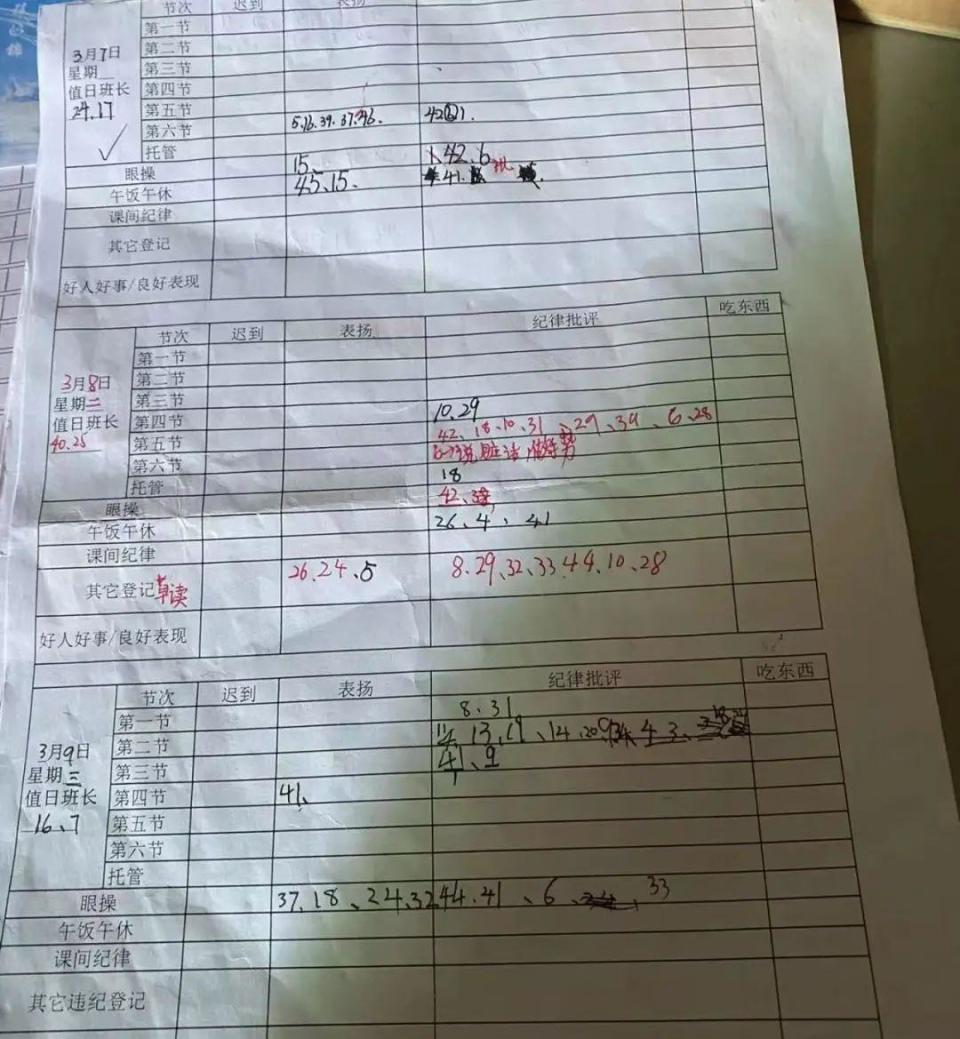 节次 迟到 表扬
第一节
第二节
3月7日
第三节
星期
第四节
值日班长
第五节
24.17
第六节 5.16.39.37.
托管
眼操 15 1.42.6
午饭午休 45.15. 41.
课间纪律
其它登记
好人好事/良好表现
节次 迟到 表扬 纪律批评 吃东西
第一节
第二节
3月8日
第三节
星期二
第四节 10.29
值日班长
第五节 42、18、10、31、29、39、6、28
40.25
第六节 说脏话
托管 18
眼操 42、
午饭午休 26、4、41
课间纪律
其它登记 早读 26.24、5 8.29、32、33.44、10、28
好人好事/良好表现
节次 迟到 表扬 纪律批评 吃东西
第一节 8.31
第二节 13、19、14、20
3月9日
第三节 41、9
星期三
第四节 41、
值日班长
第五节
16、7
第六节
托管
眼操 37.18、24.32 44.41、6、33
午饭午休
课间纪律
其它违纪登记